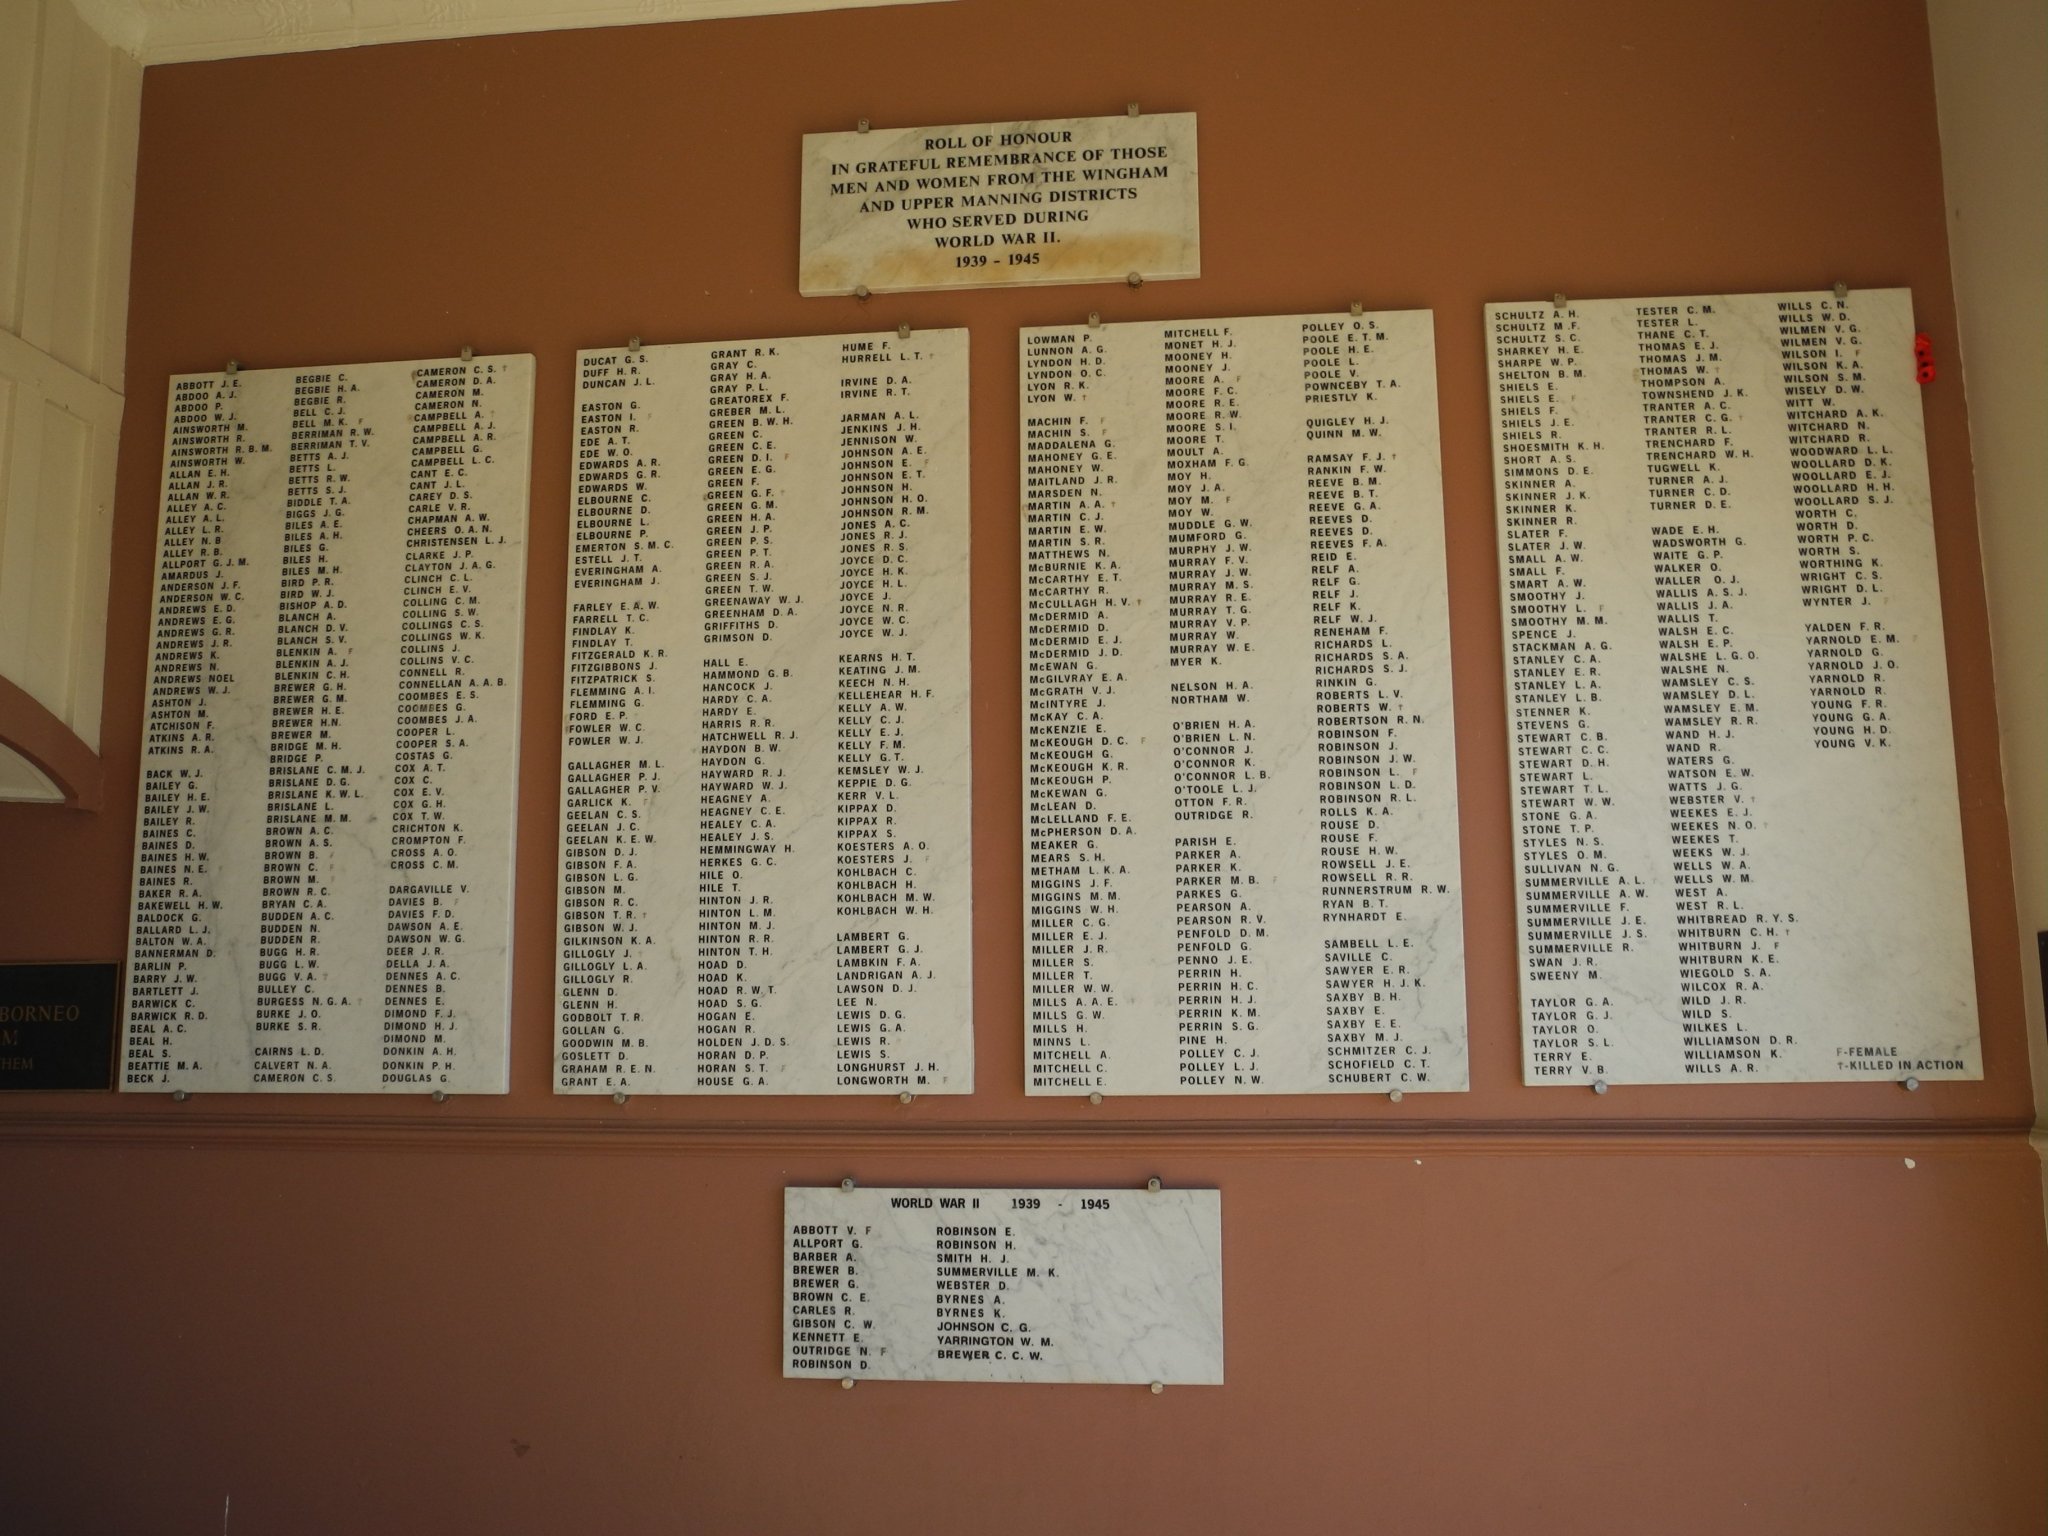 ROLL OF HONOUR
IN GRATEFUL REMEMBRANCE OF THOSE
MEN AND WOMEN FROM THE WINGHAM
AND UPPER MANNING DISTRICTS
WHO SERVED DURING
WORLD WAR II.
1939 - 1945
ABBOTT J. E.
ABDOO A. J.
ABDOO P.
ABDOO W. J.
AINSWORTH M.
AINSWORTH R.
AINSWORTH R. B. M.
AINSWORTH W.
ALLAN E. H.
ALLAN J. R.
ALLAN W. R.
ALLEY A. C.
ALLEY A. L.
ALLEY L. R.
ALLEY N. B
ALLEY R. B.
ALLPORT G. J. M.
AMARDUS J.
ANDERSON J. F.
ANDERSON W. C.
ANDREWS E. D.
ANDREWS E. G.
ANDREWS G. R.
ANDREWS J. R.
ANDREWS K.
ANDREWS N.
ANDREWS NOEL
ANDREWS W. J.
ASHTON J.
ASHTON M.
ATCHISON F.
ATKINS A. R.
ATKINS R. A.
BACK W. J.
BAILEY G.
BAILEY H. E.
BAILEY J. W.
BAILEY R.
BAINES C.
BAINES D.
BAINES H. W.
BAINES N. E. F
BAINES R.
BAKER R. A.
BAKEWELL H. W.
BALDOCK G.
BALLARD L. J.
BALTON W. A.
BANNERMAN D.
BARLIN P.
BARRY J. W.
BARTLETT J.
BARWICK C.
BARWICK R. D.
BEAL A. C.
BEAL H.
BEAL S.
BEATTIE M. A.
BECK J.
BEGBIE C.
BEGBIE H. A.
BEGBIE R.
BELL C. J.
BELL M. K. F
BERRIMAN R. W.
BERRIMAN T. V.
BETTS A. J.
BETTS L.
BETTS R. W.
BETTS S. J.
BIDDLE T. A.
BIGGS J. G.
BILES A. E.
BILES A. H.
BILES G.
BILES H.
BILES M. H.
BIRD P. R.
BIRD W. J.
BISHOP A. D.
BLANCH A.
BLANCH D. V.
BLANCH S. V.
BLENKIN A. F
BLENKIN A. J.
BLENKIN C. H.
BREWER G. H.
BREWER G. M.
BREWER H. E.
BREWER H.N.
BREWER M.
BRIDGE M. H.
BRIDGE P.
BRISLANE C. M. J.
BRISLANE D. G.
BRISLANE K. W. L.
BRISLANE L.
BRISLANE M. M.
BROWN A. C.
BROWN A. S.
BROWN B. F
BROWN C. F
BROWN M. F
BROWN R. C.
BRYAN C. A.
BUDDEN A. C.
BUDDEN N.
BUDDEN R.
BUGG H. R.
BUGG L. W.
BUGG V. A. †
BULLEY C.
BURGESS N. G. A. †
BURKE J. O.
BURKE S. R.
CAIRNS L. D.
CALVERT N. A.
CAMERON C. S.
CAMERON C. S. †
CAMERON D. A.
CAMERON M.
CAMERON N.
CAMPBELL A. †
CAMPBELL A. J.
CAMPBELL A. R.
CAMPBELL G.
CAMPBELL L. C.
CANT E. C.
CANT J. L.
CAREY D. S.
CARLE V. R.
CHAPMAN A. W.
CHEERS O. A. N.
CHRISTENSEN L. J.
CLARKE J. P.
CLAYTON J. A. G.
CLINCH C. L.
CLINCH E. V.
COLLING C. M.
COLLING S. W.
COLLINGS C. S.
COLLINGS W. K.
COLLINS J.
COLLINS V. C.
CONNELL R.
CONNELLAN A. A. B.
COOMBES E. S.
COOMBES G.
COOMBES J. A.
COOPER L.
COOPER S. A.
COSTAS G.
COX A. T.
COX C.
COX E. V.
COX G. H.
COX T. W.
CRICHTON K.
CROMPTON F.
CROSS A. O.
CROSS C. M.
DARGAVILLE V.
DAVIES B. F
DAVIES F. D.
DAWSON A. E.
DAWSON W. G.
DEER J. R.
DELLA J. A.
DENNES A. C.
DENNES B.
DENNES E.
DIMOND F. J.
DIMOND H. J.
DIMOND M.
DONKIN A. H.
DONKIN P. H.
DOUGLAS G.
DUCAT G. S.
DUFF H. R.
DUNCAN J. L.
EASTON G.
EASTON I. F
EASTON R.
EDE A. T.
EDE W. O.
EDWARDS A. R.
EDWARDS G. R.
EDWARDS W.
ELBOURNE C.
ELBOURNE D.
ELBOURNE L.
ELBOURNE P.
EMERTON S. M. C.
ESTELL J. T.
EVERINGHAM A.
EVERINGHAM J.
FARLEY E. A. W.
FARRELL T. C.
FINDLAY K.
FINDLAY T.
FITZGERALD K. R.
FITZGIBBONS J.
FITZPATRICK S.
FLEMMING A. I.
FLEMMING G.
FORD E. P.
FOWLER W. C.
FOWLER W. J.
GALLAGHER M. L.
GALLAGHER P. J.
GALLAGHER P. V.
GARLICK K. F
GEELAN C. S.
GEELAN J. C.
GEELAN K. E. W.
GIBSON D. J.
GIBSON F. A.
GIBSON L. G.
GIBSON M.
GIBSON R. C.
GIBSON T. R. †
GIBSON W. J.
GILKINSON K. A.
GILLOGLY J. †
GILLOGLY L. A.
GILLOGLY R.
GLENN D.
GLENN H.
GODBOLT T. R.
GOLLAN G.
GOODWIN M. B.
GOSLETT D.
GRAHAM R. E. N.
GRANT E. A.
GRANT R. K.
GRAY C.
GRAY H. A.
GRAY P. L.
GREATOREX F.
GREBER M. L.
GREEN B. W. H.
GREEN C.
GREEN C. E.
GREEN D. I. F
GREEN E. G.
GREEN F.
GREEN G. F. †
GREEN G. M.
GREEN H. A.
GREEN J. P.
GREEN P. S.
GREEN P. T.
GREEN R. A.
GREEN S. J.
GREEN T. W.
GREENAWAY W. J.
GREENHAM D. A.
GRIFFITHS D.
GRIMSON D.
HALL E.
HAMMOND G. B.
HANCOCK J.
HARDY C. A.
HARDY E.
HARRIS R. R.
HATCHWELL R. J.
HAYDON B. W.
HAYDON G.
HAYWARD R. J.
HAYWARD W. J.
HEAGNEY A.
HEAGNEY C. E.
HEALEY C. A.
HEALEY J. S.
HEMMINGWAY H.
HERKES G. C.
HILE O.
HILE T.
HINTON J. R.
HINTON L. M.
HINTON M. J.
HINTON R. R.
HINTON T. H.
HOAD D.
HOAD K.
HOAD R. W. T.
HOAD S. G.
HOGAN E.
HOGAN R.
HOLDEN J. D. S.
HORAN D. P.
HORAN S. T. F
HOUSE G. A.
HUME F.
HURRELL L. T. †
IRVINE D. A.
IRVINE R. T.
JARMAN A. L.
JENKINS J. H.
JENNISON W.
JOHNSON A. E.
JOHNSON E. F
JOHNSON E. T.
JOHNSON H.
JOHNSON H. O.
JOHNSON R. M.
JONES A. C.
JONES R. J.
JONES R. S.
JOYCE D. C.
JOYCE H. K.
JOYCE H. L.
JOYCE J.
JOYCE N. R.
JOYCE W. C.
JOYCE W. J.
KEARNS H. T.
KEATING J. M.
KEECH N. H.
KELLEHEAR H. F.
KELLY A. W.
KELLY C. J.
KELLY E. J.
KELLY F. M.
KELLY G. T.
KEMSLEY W. J.
KEPPIE D. G.
KERR V. L.
KIPPAX D.
KIPPAX R.
KIPPAX S.
KOESTERS A. O.
KOESTERS J. F
KOHLBACH C.
KOHLBACH H.
KOHLBACH M. W.
KOHLBACH W. H.
LAMBERT G.
LAMBERT G. J.
LAMBKIN F. A.
LANDRIGAN A. J.
LAWSON D. J.
LEE N.
LEWIS D. G.
LEWIS G. A.
LEWIS R.
LEWIS S.
LONGHURST J. H.
LONGWORTH M. F
LOWMAN P.
LUNNON A. G.
LYNDON H. D.
LYNDON O. C.
LYON R. K.
LYON W. †
MACHIN F. F
MACHIN S. F
MADDALENA G.
MAHONEY G. E.
MAHONEY W.
MAITLAND J. R.
MARSDEN N.
MARTIN A. A. †
MARTIN C. J.
MARTIN E. W.
MARTIN S. R.
MATTHEWS N.
McBURNIE K. A.
McCARTHY E. T.
McCARTHY R.
McCULLAGH H. V. †
McDERMID A.
McDERMID D.
McDERMID E. J.
McDERMID J. D.
McEWAN G.
McGILVRAY E. A.
McGRATH V. J.
McINTYRE J.
McKAY C. A.
McKENZIE E.
McKEOUGH D. C. F
McKEOUGH G.
McKEOUGH K. R.
McKEOUGH P.
McKEWAN G.
McLEAN D.
McLELLAND F. E.
McPHERSON D. A.
MEAKER G.
MEARS S. H.
METHAM L. K. A.
MIGGINS J. F.
MIGGINS M. M.
MIGGINS W. H.
MILLER C. G.
MILLER E. J.
MILLER J. R.
MILLER S.
MILLER T.
MILLER W. W.
MILLS A. A. E. †
MILLS G. W.
MILLS H.
MINNS L.
MITCHELL A.
MITCHELL C.
MITCHELL E.
MITCHELL F.
MONET H. J.
MOONEY H.
MOONEY J.
MOORE A. F
MOORE F. C.
MOORE R. E.
MOORE R. W.
MOORE S. I.
MOORE T.
MOULT A.
MOXHAM F. G.
MOY H.
MOY J. A.
MOY M. F
MOY W.
MUDDLE G. W.
MUMFORD G.
MURPHY J. W.
MURRAY F. V.
MURRAY J. W.
MURRAY M. S.
MURRAY R. E.
MURRAY T. G.
MURRAY V. P.
MURRAY W.
MURRAY W. E.
MYER K.
NELSON H. A.
NORTHAM W.
O'BRIEN H. A.
O'BRIEN L. N.
O'CONNOR J.
O'CONNOR K.
O'CONNOR L. B.
O'TOOLE L. J.
OTTON F. R.
OUTRIDGE R.
PARISH E.
PARKER A.
PARKER K.
PARKER M. B. F
PARKES G.
PEARSON A.
PEARSON R. V.
PENFOLD D. M.
PENFOLD G.
PENNO J. E.
PERRIN H.
PERRIN H. C.
PERRIN H. J.
PERRIN K. M.
PERRIN S. G.
PINE H.
POLLEY C. J.
POLLEY L. J.
POLLEY N. W.
POLLEY O. S.
POOLE E. T. M.
POOLE H. E.
POOLE L.
POOLE V.
POWNCEBY T. A.
PRIESTLY K.
QUIGLEY H. J.
QUINN M. W.
RAMSAY F. J. †
RANKIN F. W.
REEVE B. M.
REEVE B. T.
REEVE G. A.
REEVES D.
REEVES D.
REEVES F. A.
REID E.
RELF A.
RELF G.
RELF J.
RELF K.
RELF W. J.
RENEHAM F.
RICHARDS L.
RICHARDS S. A.
RICHARDS S. J.
RINKIN G.
ROBERTS L. V.
ROBERTS W. †
ROBERTSON R. N.
ROBINSON F.
ROBINSON J.
ROBINSON J. W.
ROBINSON L. F
ROBINSON L. D.
ROBINSON R. L.
ROLLS K. A.
ROUSE D.
ROUSE F.
ROUSE H. W.
ROWSELL J. E.
ROWSELL R. R.
RUNNERSTRUM R. W.
RYAN B. T.
RYNHARDT E.
SAMBELL L. E.
SAVILLE C.
SAWYER E. R.
SAWYER H. J. K.
SAXBY B. H.
SAXBY E.
SAXBY E. E.
SAXBY M. J.
SCHMITZER C. J.
SCHOFIELD C. T.
SCHUBERT C. W.
SCHULTZ A. H.
SCHULTZ M .F.
SCHULTZ S. C.
SHARKEY H. E.
SHARPE W. P.
SHELTON B. M.
SHIELS E.
SHIELS E. F
SHIELS F.
SHIELS J. E.
SHIELS R.
SHOESMITH K. H.
SHORT A. S.
SIMMONS D. E.
SKINNER A.
SKINNER J. K.
SKINNER K.
SKINNER R.
SLATER F.
SLATER J. W.
SMALL A. W.
SMALL F.
SMART A. W.
SMOOTHY J.
SMOOTHY L. F
SMOOTHY M. M.
SPENCE J.
STACKMAN A. G.
STANLEY C. A.
STANLEY E. R.
STANLEY L. A.
STANLEY L. B.
STENNER K.
STEVENS G.
STEWART C. B.
STEWART C. C.
STEWART D. H.
STEWART L.
STEWART T. L.
STEWART W. W.
STONE G. A.
STONE T. P.
STYLES N. S.
STYLES O. M.
SULLIVAN N. G.
SUMMERVILLE A. L. F
SUMMERVILLE A. W.
SUMMERVILLE F.
SUMMERVILLE J. E.
SUMMERVILLE J. S.
SUMMERVILLE R.
SWAN J. R.
SWEENY M.
TAYLOR G. A.
TAYLOR G. J.
TAYLOR O.
TAYLOR S. L.
TERRY E.
TERRY V. B.
TESTER C. M.
TESTER L.
THANE C. T.
THOMAS E. J.
THOMAS J. M.
THOMAS W. †
THOMPSON A.
TOWNSHEND J. K.
TRANTER A. C.
TRANTER C. G. †
TRANTER R. L.
TRENCHARD F.
TRENCHARD W. H.
TUGWELL K.
TURNER A. J.
TURNER C. D.
TURNER D. E.
WADE E. H.
WADSWORTH G.
WAITE G. P.
WALKER O.
WALLER O. J.
WALLIS A. S. J.
WALLIS J. A.
WALLIS T.
WALSH E. C.
WALSH E. P.
WALSHE L. G. O.
WALSHE N.
WAMSLEY C. S.
WAMSLEY D. L.
WAMSLEY E. M.
WAMSLEY R. R.
WAND H. J.
WAND R.
WATERS G.
WATSON E. W.
WATTS J. G.
WEBSTER V. †
WEEKES E. J.
WEEKES N. O. †
WEEKES T.
WEEKS W. J.
WELLS W. A.
WELLS W. M.
WEST A.
WEST R. L.
WHITBREAD R. Y. S.
WHITBURN C. H. †
WHITBURN J. F
WHITBURN K. E.
WIEGOLD S. A.
WILCOX R. A.
WILD J. R.
WILD S.
WILKES L.
WILLIAMSON D. R.
WILLIAMSON K.
WILLS A. R.
WILLS C. N.
WILLS W. D.
WILMEN V. G.
WILMEN V. G.
WILSON I. F
WILSON K. A.
WILSON S. M.
WISELY D. W.
WITT W.
WITCHARD A. K.
WITCHARD N.
WITCHARD R.
WOODWARD L. L.
WOOLLARD D. K.
WOOLLARD E. J.
WOOLLARD H. H.
WOOLLARD S. J.
WORTH C.
WORTH D.
WORTH P. C.
WORTH S.
WORTHING K.
WRIGHT C. S.
WRIGHT D. L.
WYNTER J. F
YALDEN F. R.
YARNOLD E. M. F
YARNOLD G.
YARNOLD J. O.
YARNOLD R.
YARNOLD R.
YOUNG F. R.
YOUNG G. A.
YOUNG H. D.
YOUNG V. K.
F-FEMALE
†-KILLED IN ACTION
BORNEO
WORLD WAR II 1939 - 1945
ABBOTT V. F
ALLPORT G.
BARBER A.
BREWER B.
BREWER G.
BROWN C. E.
CARLES R.
GIBSON C. W.
KENNETT E.
OUTRIDGE N. F
ROBINSON D.
ROBINSON E.
ROBINSON H.
SMITH H. J.
SUMMERVILLE M. K.
WEBSTER D.
BYRNES A.
BYRNES K.
JOHNSON C. G.
YARRINGTON W. M.
BREWER C. C. W.